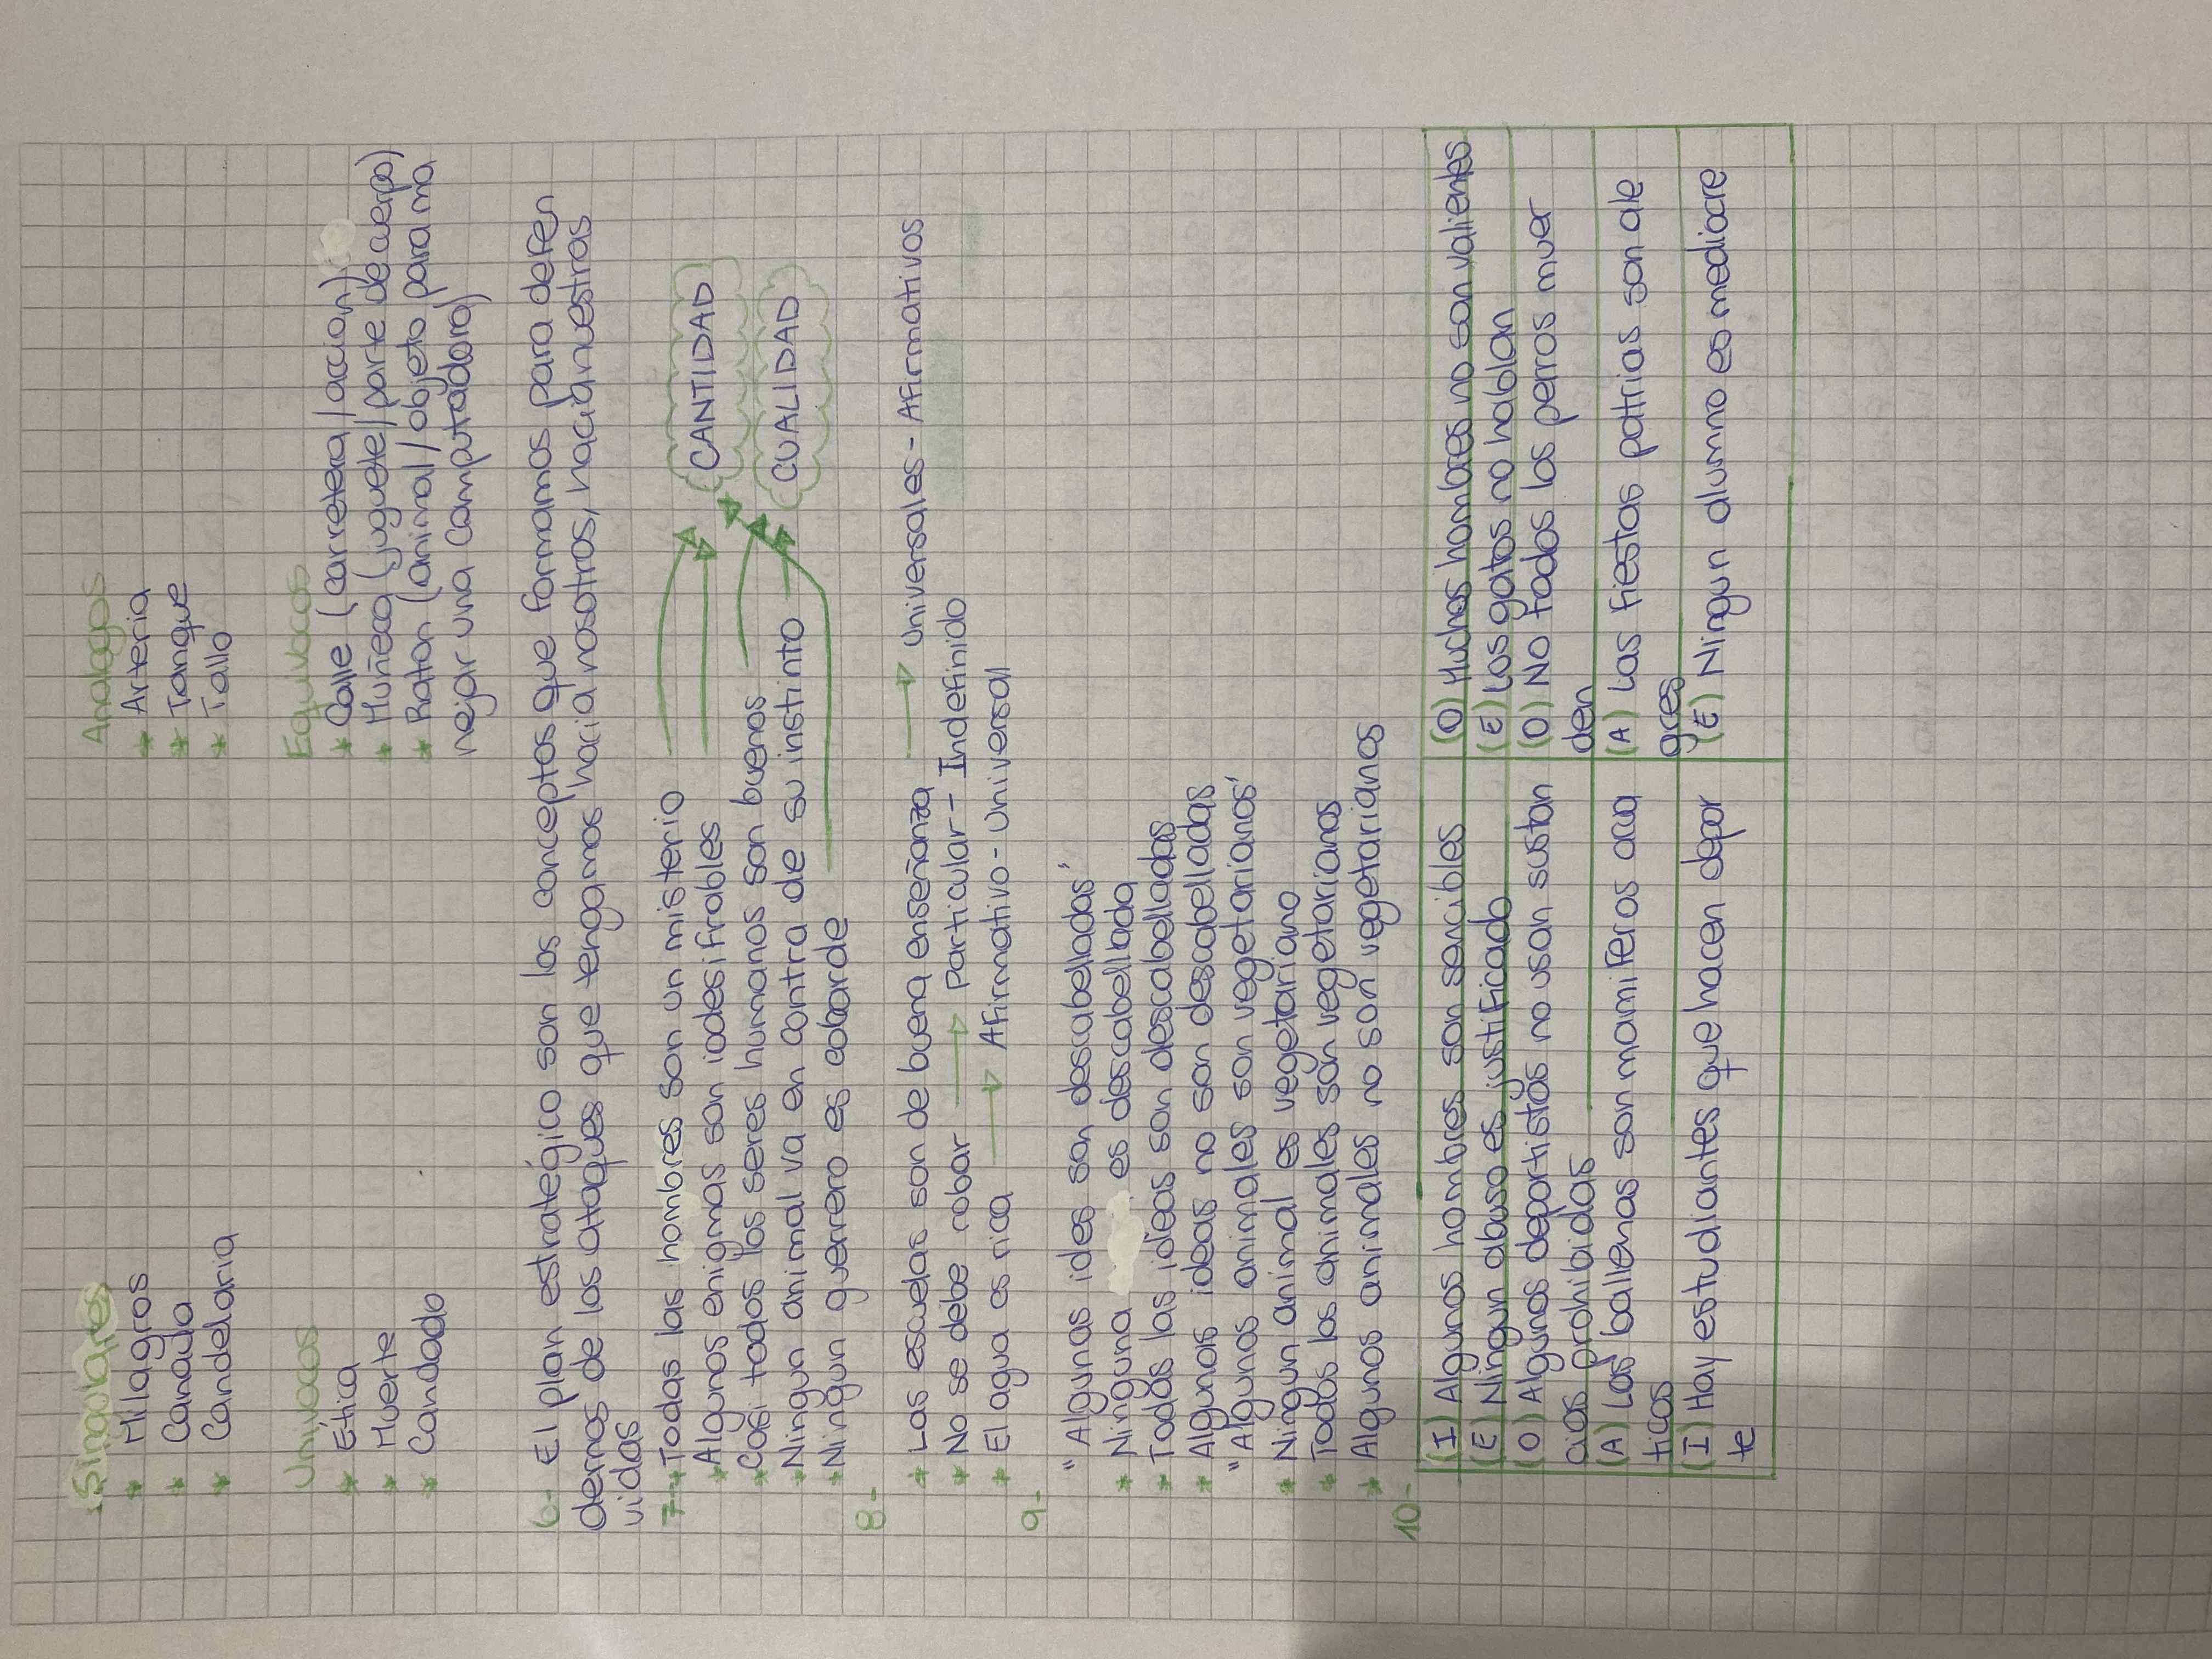 Singulares
* Milagros
* Canada
* Candelaria
Analogos
* Arteria
* Tanque
* Tallo
Univocos
* Ética
* Muerte
* Candado
Equivocos
* Calle (carretera/accion)
* Muñeca (juguete/parte de cuerpo)
* Raton (animal/objeto para ma
nejar una computadora)
6- El plan estratégico son los conceptos que formamos para defen
dernos de los ataques que tengamos hacia nosotros/hacia nuestras
vidas
7-* Todas las hombres son un misterio
* Algunos enigmas son iodesifrables
* Casi todos los seres humanos son buenos
* Ningun animal va en contra de su instinto
* Ningun guerrero es cobarde
CANTIDAD
CUALIDAD
8-
* Las escuelas son de buena enseñanza → Universales - Afirmativos
* No se debe robar → particular -- Indefinido
* El agua es rica → Afirmativo - Universal
9-
"Algunas ides son descabelladas'
* Ninguna es descabellada
* Todas las ideas son descabelladas
* Algunas ideas no son descabelladas
"Algunos animales son vegetarianos'
* Ningun animal es vegetariano
* Todos los animales són vegetarianos
* Algunos animales no son vegetarianos
10-
(I) Algunos hombres son sencibles
(E) Ningun abuso es justificado
(O) Algunos deportistas no usan sustan
cias prohibidas
(A) Las ballenas son mamiferos acua
ticos
(I) Hay estudiantes que hacen depor
te
(O) Muchos hombres no son valientes
(E) Los gatos no hablan
(O) No todos los perros muer
den
(A) Las fiestas patrias son ale
gres
(E) Ningun alumno es mediocre